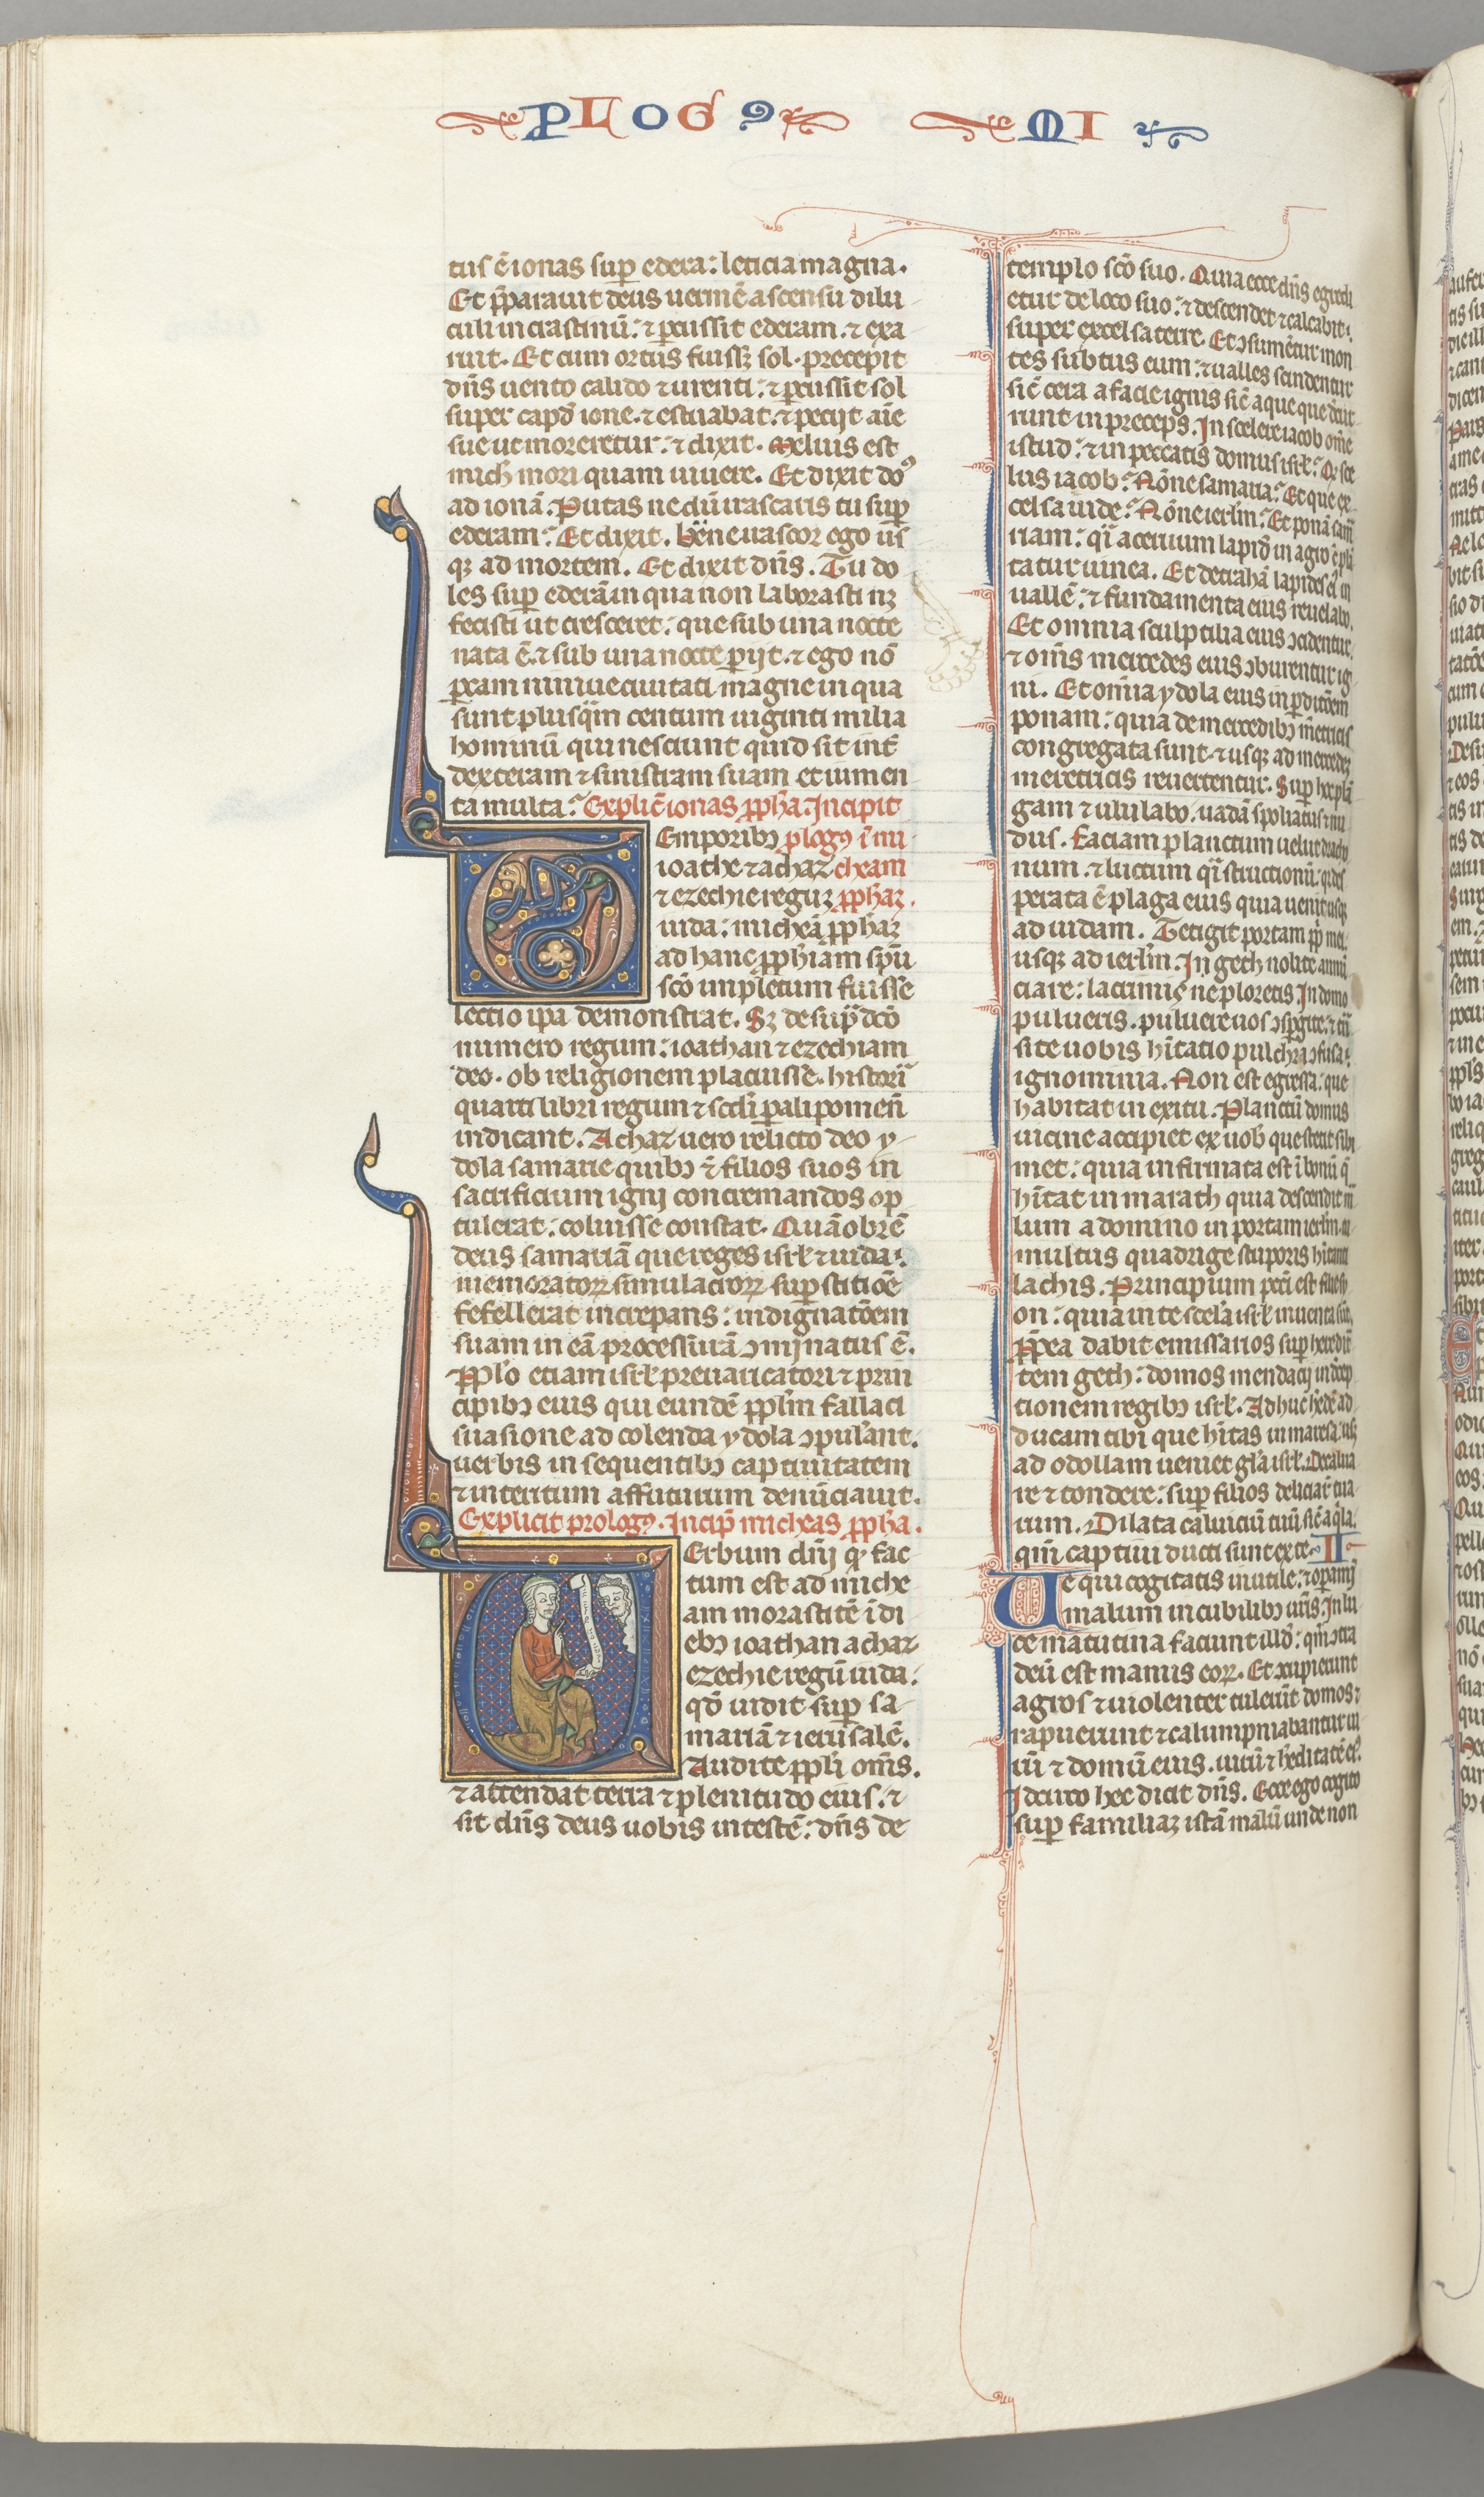 PLOG9 MI
tus ē ionas sup edera: leticia magna.
Et p̄parauit deus uermē ascensu dilu
culi in crastinū: ⁊ p̱cussit ederam. ⁊ exa
ruit. Et cum ortus fuissꝫ sol. precepit
dn̄s uento calido ⁊ urenti: ⁊ p̱cussit sol
super capd̄ ione. ⁊ estuabat. ⁊ petijt aīe
sue ut moreretur: ⁊ dixit. Melius est
mich̄ mori quam uiuere. Et dixit do9
ad ionā. Putas ne dū irascaris tu sup̱
ederam? Et dixit. bn̄e irascor ego us̄
qꝫ ad mortem. Et dixit dn̄s. Tu do
les sup̱ ederā in qua non laborasti nꝫ
fecisti ut cresceret: que sub una nocte
nata ē. ⁊ sub una nocte p̱ijt. ⁊ ego nō
p̱cam niniue ciuitati magne in qua
sunt plus qͣm centum uiginti milia
hominū qui nesciunt quid sit int̄
dexteram ⁊ sinistram suam et iumen
ta multa? Explic̄ ionas p̱ph̄a. Incipit
Emporibꝫ plog9 ī mi
ioathe ⁊ achaz cheam
⁊ ezechie reguꝫ p̱ph̄aꝫ.
iuda: micheā p̱ph̄aꝫ
ad hanc p̱ph̄iam sp̄u
sc̄o impletum fuisse
lectio ip̄a demonstrat. Sꝫ de sup̱ͣdc̄o
numero regum: ioathan ⁊ ezechiam
deo. ob religionem placuisse. historī
quarti libri regum ⁊ sc̄di p̱alipomen̄
indicant. Achaz uero relicto deo y-
dola samarie quibꝫ ⁊ filios suos in
sacrificium igni concremandos op
tulerat: coluisse constat. Quā ob rē
deus samariā que reges isr̄l ⁊ iuda:
memoratoꝝ simulacroꝝ sup̱stitiōe
fefellerat increpans: indignatōem
suam in eā processurā ↄminatus ē.
Pp̄lo etiam isr̄l preuaricatori ⁊ prin
cipibꝫ eius qui eundē pp̄lm fallaci
suasione ad colenda ydola ↄpul̄ant.
uerbis in sequentibꝫ captiuitatem
⁊ interitum affuturum denūciauit.
Explicit prolog9. Incip̄ micheas p̱ph̄a.
Erbum dn̄i qͩ fac
tum est ad miche
am morastitē ī di
ebꝫ ioathan achaz
ezechie regū iuda:
qd̄ uidit sup̱ sa-
mariā ⁊ ierusalē.
Audite pp̄li om̄s.
⁊ attendat terra ⁊ plenitudo eius. ⁊
sit dn̄s deus uobis in testē: dn̄s de
templo sc̄o suo. Quia ecce dn̄s egredi
etur de loco suo: ⁊ descendet ⁊ calcabit
super excelsa terre. Et ↄsumētur mon
tes subtus eum: ⁊ ualles scindentur
sic̄ cera a facie ignis sic̄ aque que dēcur
runt in preceps. In scelere iacob om̄e
istud: ⁊ in peccatis domus isr̄l. Qͩ sce
lus iacob? Nōne samaria? Et que ex
celsa iude? Nōne ierl̄m? Et ponā sam̄
riam: qͣi aceruum lapid̄ in agro c̄ plā
tatur uinea. Et detrahā lapides ei9 in
uallē: ⁊ fundamenta eius reuelabo.
Et omnia sculptilia eius ↄcidentur.
⁊ om̄s mercedes eius ↄburentur ig-
ni. Et om̄ia ydola eius in p̱ditōem
ponam: quia de mercedibꝫ m̄etricis
congregata sunt. ⁊ usqꝫ ad mercedeꝫ
meretricis reuertentur. Sup̱ hoc plā
gam ⁊ ululabo. uadā spoliatus ⁊ nu
dus. faciam planctum uelut draco
num. ⁊ luctum qͣi structionū: qͥ des
perata ē plaga eius quia uenit usqꝫ
ad iudam. Tetigit portam pp̄li mei.
usqꝫ ad ierl̄m. In geth nolite annū
ciare: lacrimis ne ploretis. In domo
pulueris. puluere uos ↄsp̱gite: ⁊ trā
site uobis hītatio pulchra ↄfusa:
ignominia. Non est egressa: que
habitat in exitu. Planctū domus
uicine accipiet ex uob̄ que stetit sibi
met: quia infirmata est ī bonū q̄
hītat in marath quia descendit m̄
lum a domino in portam ierl̄m. tu
multus quadrige stuporis hītanti
lachis. Principium pccī est filie sy
on: quia in te scel̄a isr̄l inuenta sūt.
Pp̄ea dabit emissarios sup̱ heredit̄
tem geth: domos mendacij in decep
tionem regibꝫ isr̄l. Adhuc hēdē ad-
ducam tibi que hītas in maresa. usqꝫ
ad odollam ueniet gl̄a isr̄l. Decalua
re ⁊ tondere: sup̱ filios deliciaꝝ tua
rum. Dilata caluiciū tuū sic̄ aq̄la.
qm̄ captiui ducti sunt ex te. II
Ue qui cogitatis inutile: ⁊ op̱amī
malum in cubilibꝫ ur̄is. In lu
ce matutina faciunt illd̄: qm̄ ↄtra
deū est manus eoꝝ. Et ↄcupierunt
agros ⁊ uiolenter tulerūt domos:
rapuerunt ⁊ calumpniabantur ui
rū ⁊ domū eius. uirū ⁊ h̄editatē ei9.
Idcirco hec dicit dn̄s. Ecce ego cogito
sup̱ familiaꝫ istā malū unde non